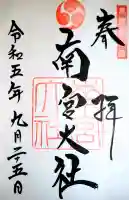 奉拝
南宮大社
令和五年九月二十五日